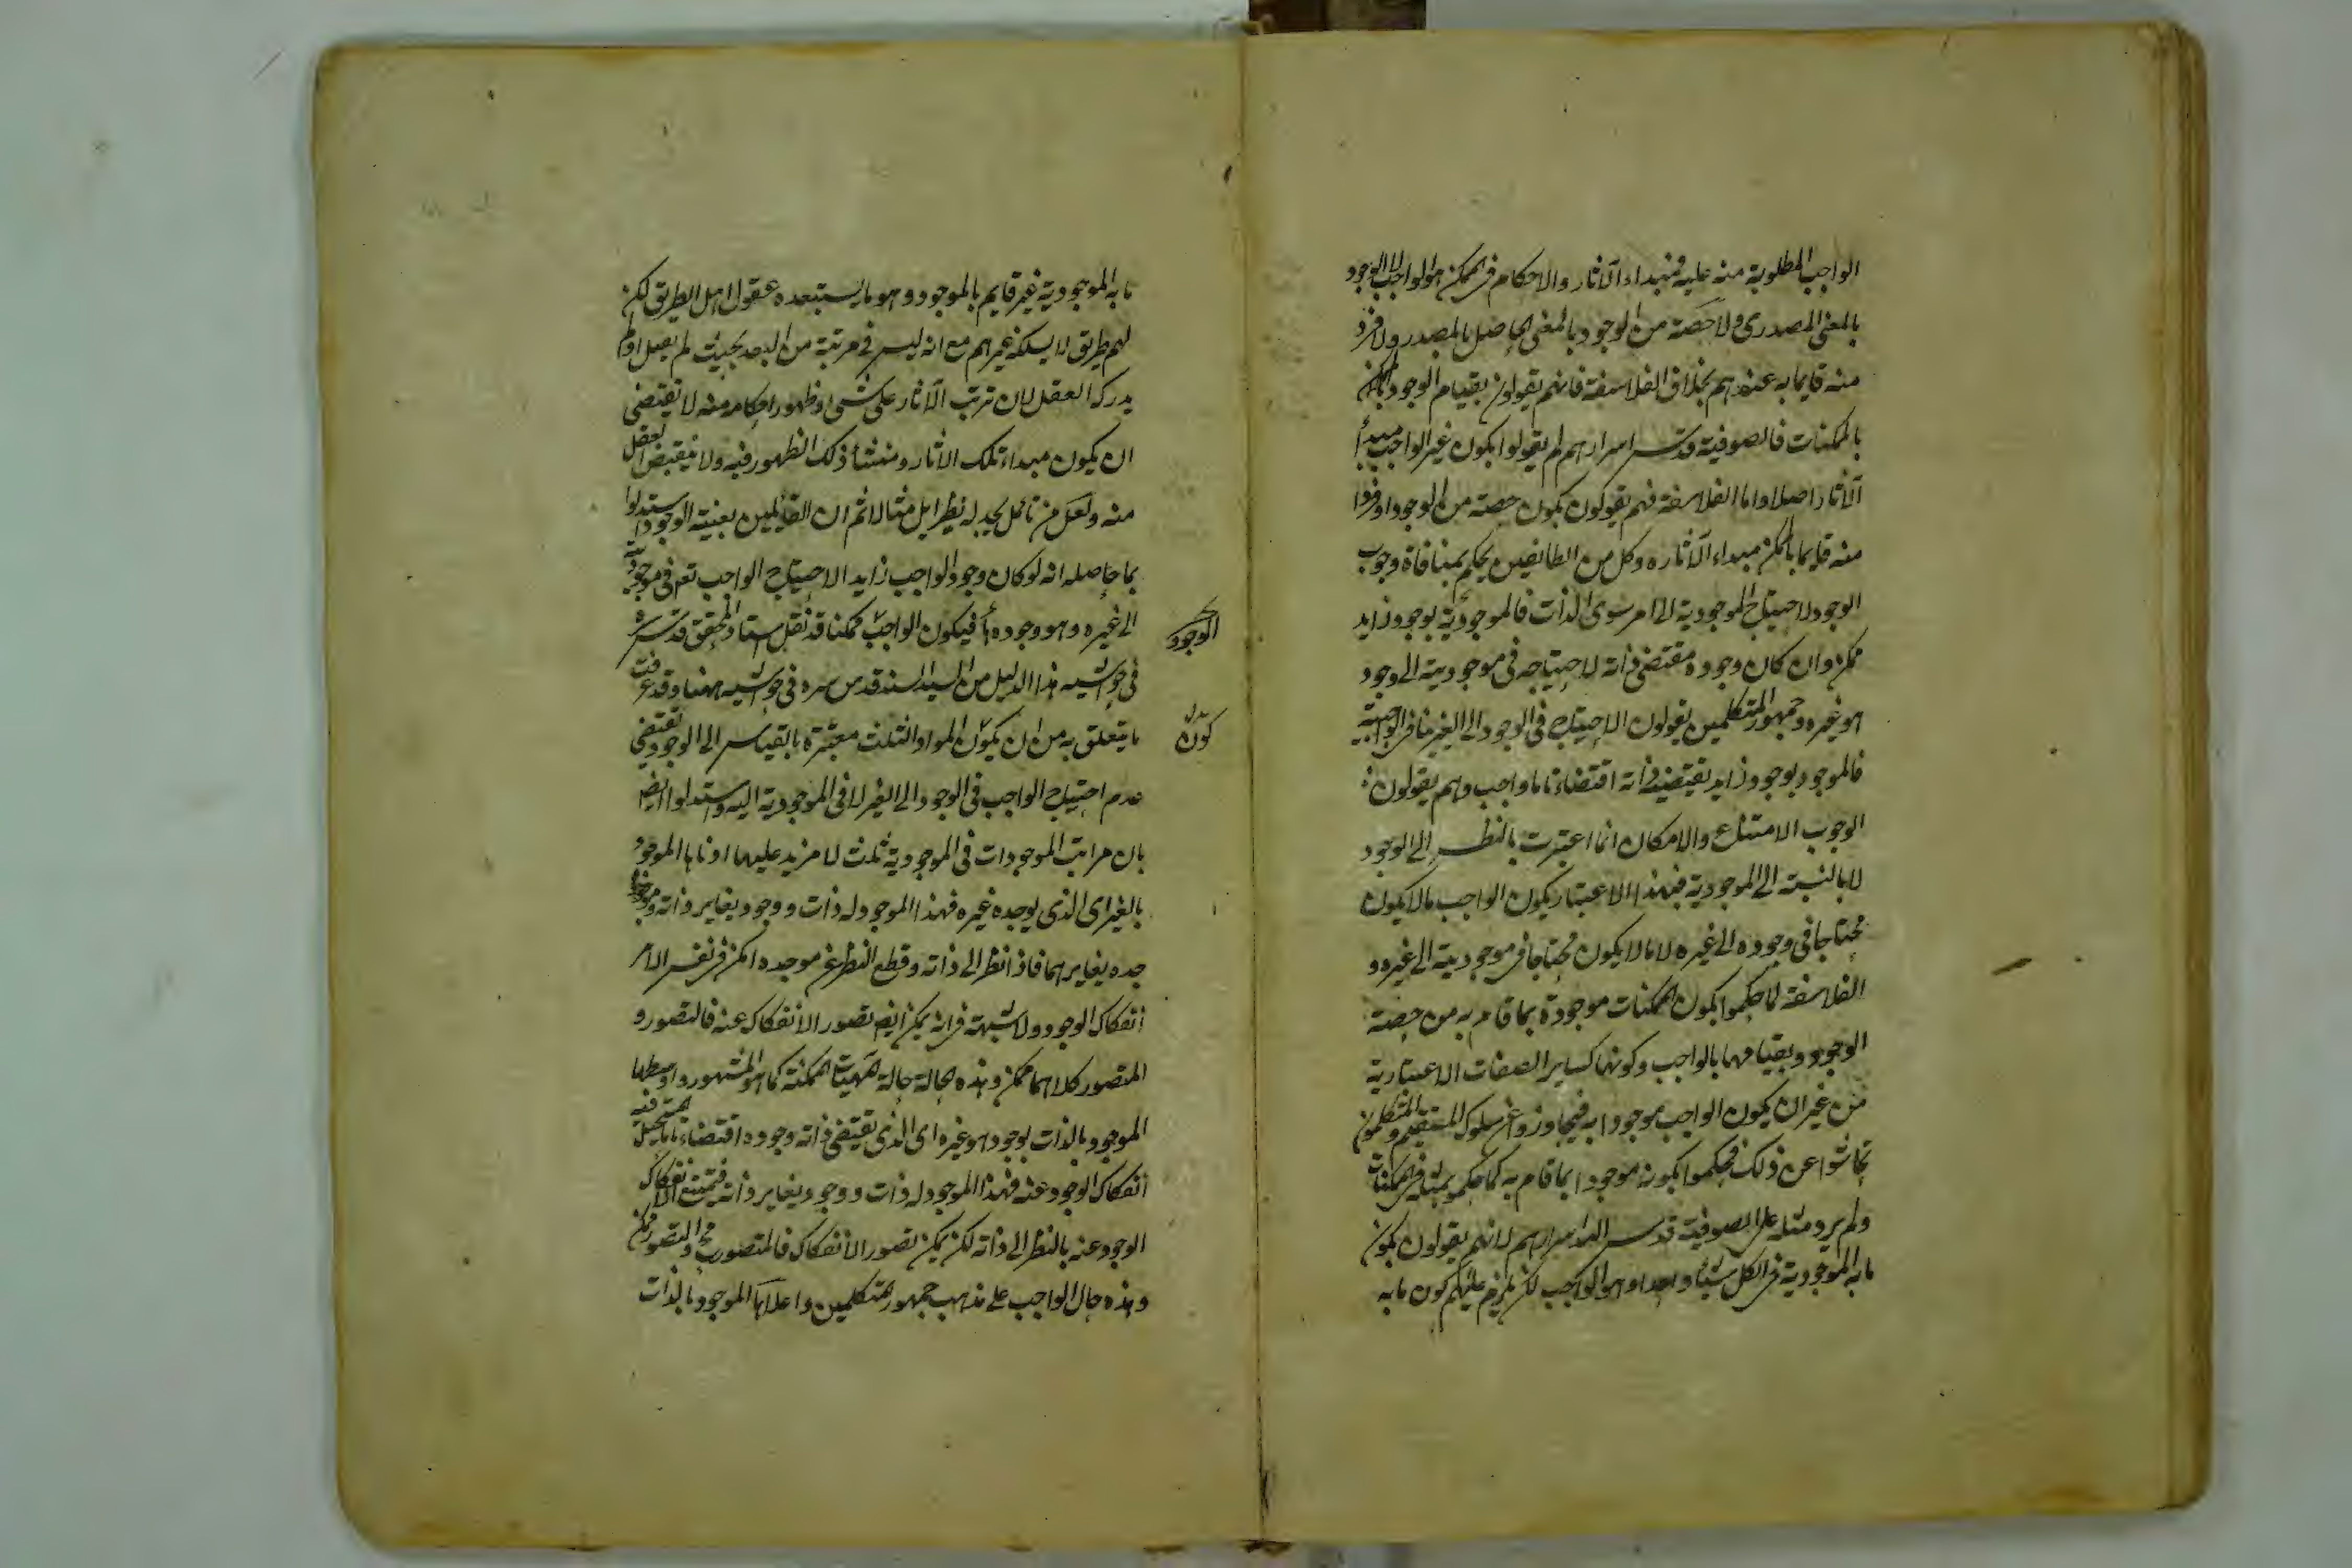 الواجب المطلوبة منه عليه فمبداء الآثار والاحكام في الممكن هو الواجب لا الوجود
بالمعنى المصدرى ولا حصة من الوجود بالمعنى الحاصل بالمصدر ولا فرد
منه قايما به عندهم بخلاف الفلاسفة فانهم يقولون بقيام الوجود
بالممكنات فالصوفية قدس اسرارهم لم يقولوا بكون غير الواجب مبدأ
الآثار اصلا واما الفلاسفة فهم يقولون بكون حصة من الوجود او فردا
منه قايما بالممكن مبداء الآثاره وكل من الطائفين يحكم بمنافاة وجوب
الوجود لاحتياج الموجودية الى امر سوى الذات فالموجودية بوجود زايد
ممكن وان كان وجوده مقتضى ذاته لاحتياجه في موجوديته الى وجود
هو غيره وجمهور المتكلمين يقولون الاحتياج في الوجود الى الغير ينافى الواجبية
فالموجود بوجود زايد يقتضيه ذاته اقتضاء تاما واجب وهم يقولون
الوجوب الامتناع والامكان انما اعتبرت بالنظر الى الوجود
لا بالنسبة الى الموجودية فبهذا الاعتبار يكون الواجب ما لا يكون
محتاجا في وجوده الى غيره لا ما لا يكون محتاجا في موجوديته الى غيره و
الفلاسفة لما حكموا بكون الممكنات موجودة بما قام به من حصة
الوجود وبقيامهما بالواجب وكونها كساير الصفات الاعتبارية
من غير ان يكون الواجب موجودا به فيجاوزوا عن سلوك المستقيم والمتكلمون
تحاشوا عن ذلك فحكموا بكونه موجودا بما قام به كما حكموا بمثله في الممكنات
ولم يرد مثله على الصوفية قدس الله اسرارهم لانهم يقولون بكون
ما به الموجودية في الكل شيئا واحدا وهو الواجب لكن يلزم عليهم كون ما به
ما به الموجودية غير قايم بالموجود وهو ما يستبعده عقول اهل الطريق لكن
لهم طريق لا يسلكه غيرهم مع انه ليس في مرتبة من البعد بحيث لم يقبل او لم
يدركه العقل لان ترتب الآثار على شىء وظهور احكامه منه لا يقتضى
ان يكون مبداء تلك الاثار ومنشأ ذلك الظهور فيه ولا ينقبض العقل
منه ولعل من تأمل يجد له نظرا بل مثالا ثم ان القايلين بعينية الوجود استدلوا
بما حاصله انه لو كان وجود الواجب زايدا لاحتياج الواجب تعم في موجوديته
الى غيره وهو وجوده فيكون الواجب ممكنا قد نقل استاد المحقق قدس سره
في حواشيه هذا الدليل من السيد السند قدس سره في حواشيه ههنا وقد عرفت
ما يتعلق به من ان يكون المواد الثلث معتبرة بالقياس الى الوجود يقتضى
عدم احتياج الواجب في الوجود الى الغير لا في الموجودية اليه واستدلوا ايضا
بان مراتب الموجودات في الموجودية ثلث لا مزيد عليها ادناها الموجود
بالغير اى الذى يوجده غيره فهذا الموجود له ذات ووجود يغاير ذاته وموجد
جده يغايرهما فاذا نظر الى ذاته وقطع النظر عن موجده امكن في نفس الامر
انفكاك الوجود ولا شبهة في انه يمكن ايضا تصور الانفكاك عنه فالتصور و
المتصور كلاهما ممكن وهذه الحالة حالة المهيات الممكنة كما هو المشهور واوسطها
الموجود بالذات بوجود هو غيره اى الذى يقتضى ذاته وجوده اقتضاء تاما يستحيل فيه
انفكاك الوجود عنه فهذا الموجود له ذات ووجود يغاير ذاته فيمتنع انفكاك
الوجود عنه بالنظر الى ذاته لكن يمكن تصور الانفكاك فالمتصور مح والتصور ممكن
وهذه حال الواجب على مذهب جمهور المتكلمين واعلاها الموجود بالذات
الوجود
كون